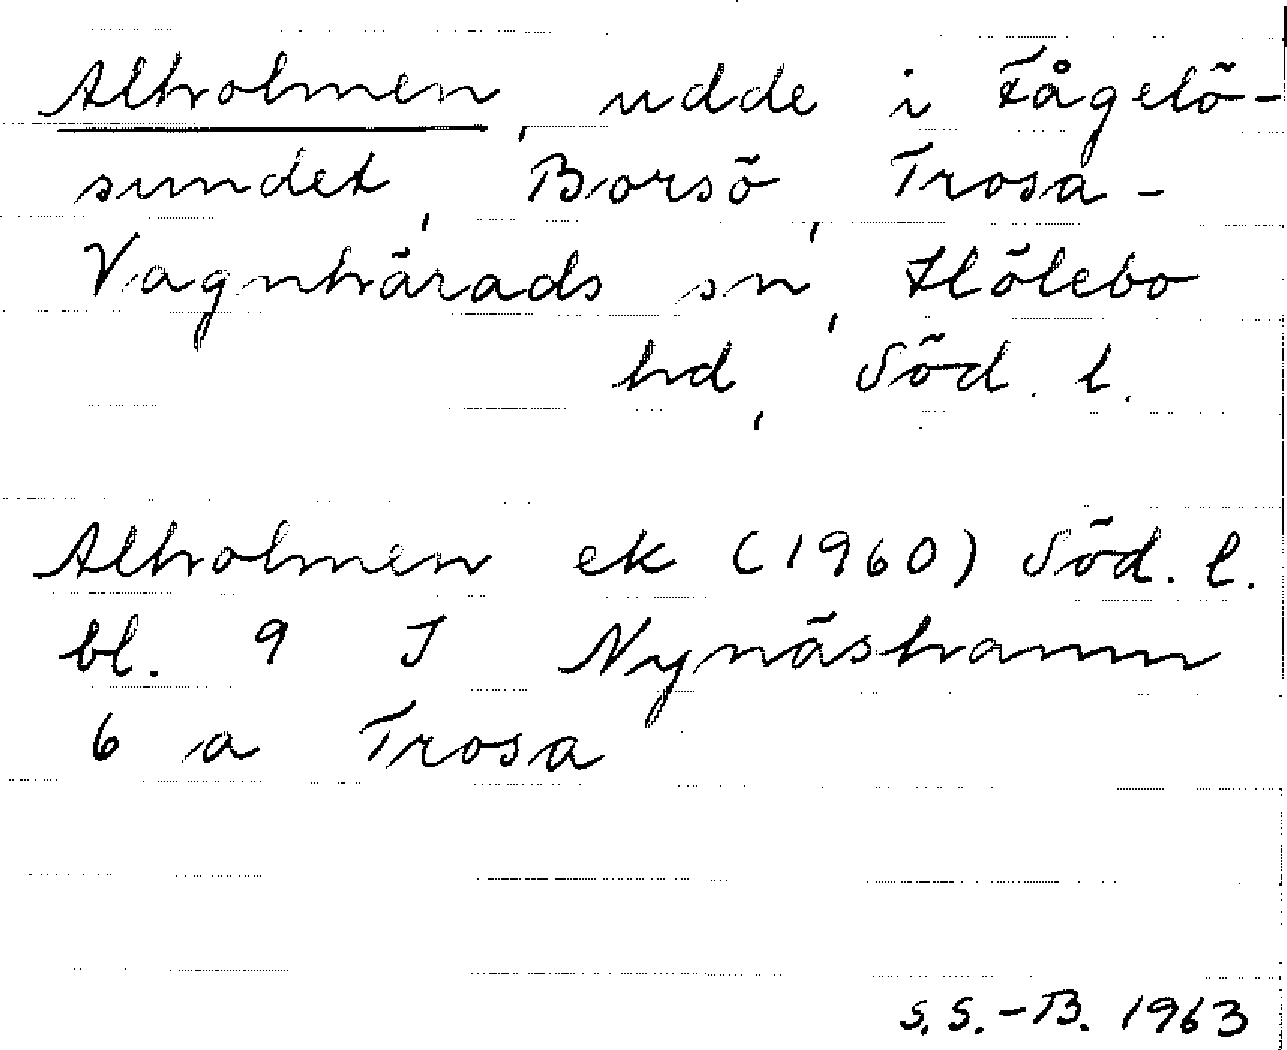 Alholmen, udde i Fågelö-
sundet, Borsö, Trosa-
Vagnhärads sn, Hölebo
hd, Söd. l.
Alholmen ek (1960) Söd. l.
bl. 9 I Nynäshamn
6 a Trosa
S. S.-B. 1963